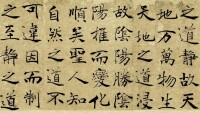 之靜故天
地萬物生
天地之道浸
故陰陽勝陰
陽推而變化
順矣聖人知
自然之道不
可違因而制
之至靜之道